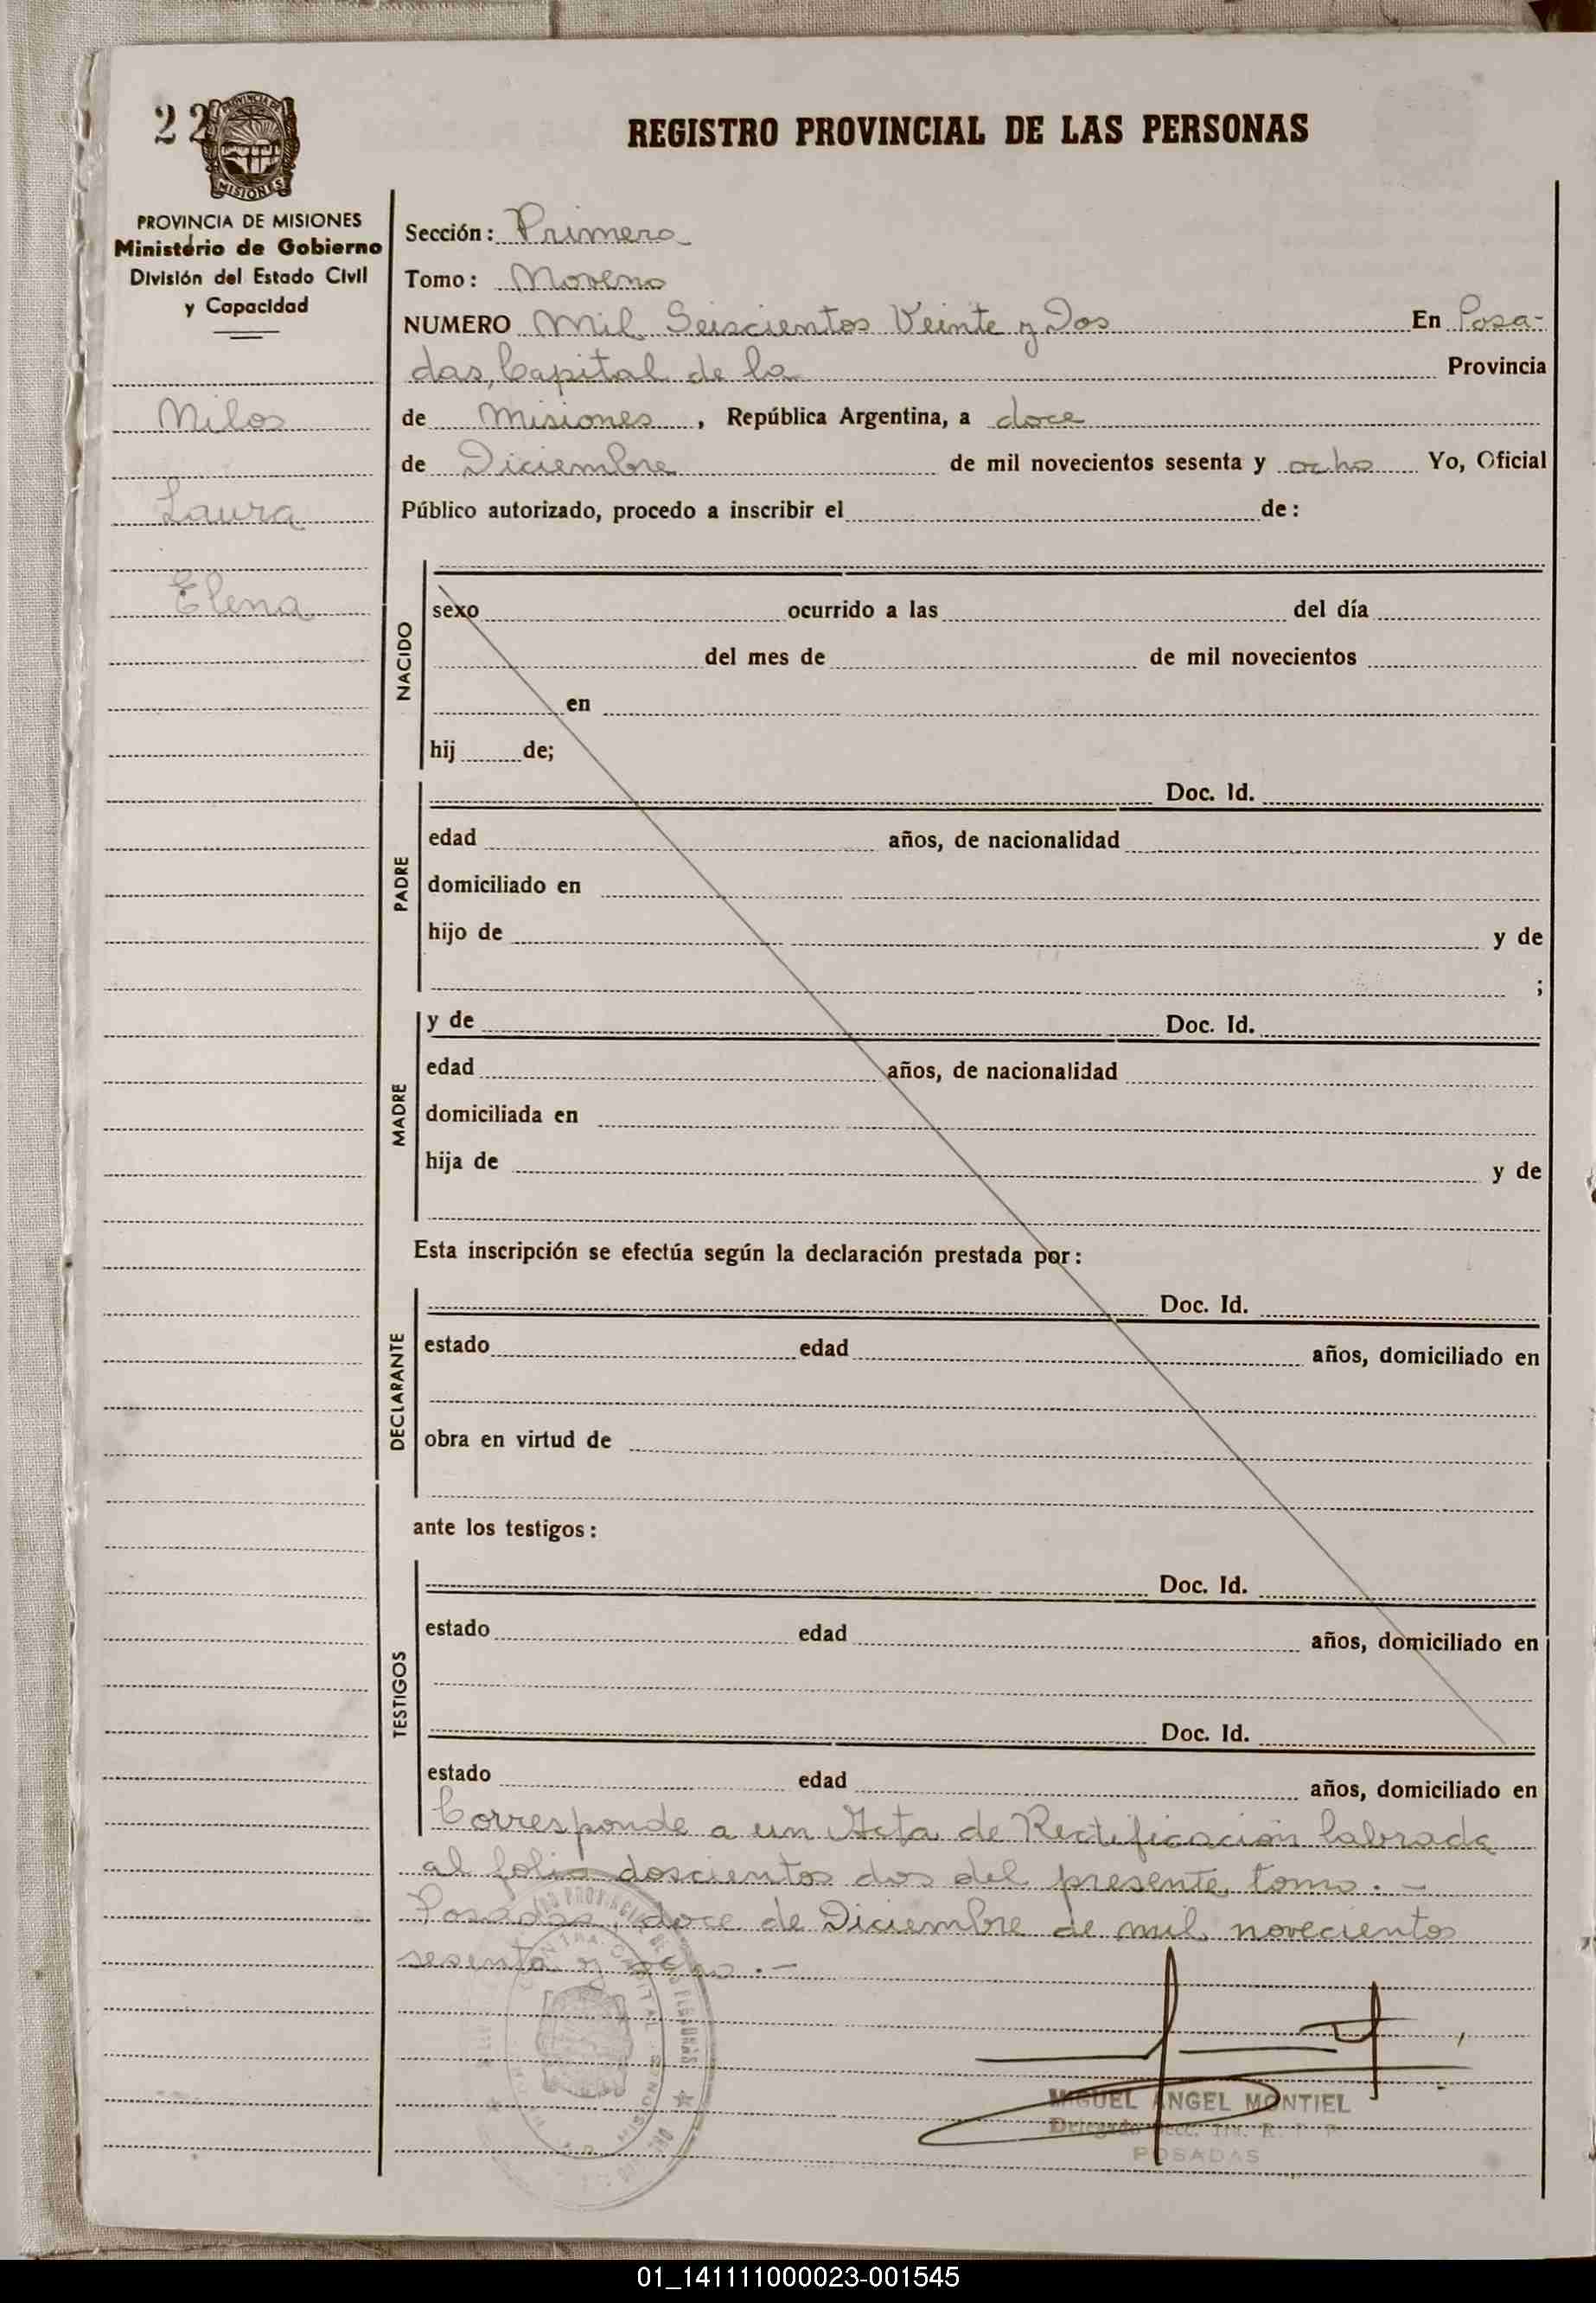 22
PROVINCIA DE
MISIONES
REGISTRO PROVINCIAL DE LAS PERSONAS
PROVINCIA DE MISIONES
Ministério de Gobierno
División del Estado Civil
y Capacidad
Milos
Laura
Elena
Sección: Primera
Tomo: Noveno
NUMERO Mil Seiscientos Veinte y Dos En Posa-
das, Capital de la Provincia
de Misiones, República Argentina, a doce
de Diciembre de mil novecientos sesenta y ocho Yo, Oficial
Público autorizado, procedo a inscribir el de:
NACIDO
sexo ocurrido a las del día
del mes de de mil novecientos
en
hij de;
PADRE
Doc. Id.
edad años, de nacionalidad
domiciliado en
hijo de y de
;
MADRE
y de Doc. Id.
edad años, de nacionalidad
domiciliada en
hija de y de
Esta inscripción se efectúa según la declaración prestada por:
DECLARANTE
Doc. Id.
estado edad años, domiciliado en
obra en virtud de
ante los testigos:
TESTIGOS
Doc. Id.
estado edad años, domiciliado en
Doc. Id.
estado edad años, domiciliado en
Corresponde a un Acta de Rectificación labrada
al folio doscientos dos del presente tomo.-
Posadas, doce de Diciembre de mil novecientos
sesenta y ocho.-
MIGUEL ANGEL MONTIEL
Delegado
POSADAS
01_141111000023-001545